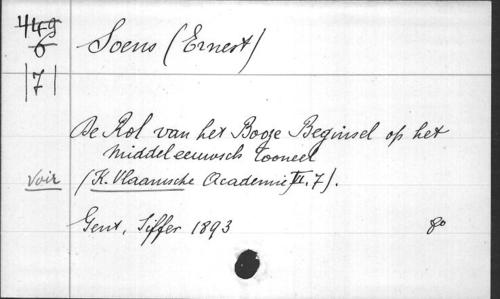 449
6
|7|
Soens (Ernest)
De Rol van het Booze Beginsel op het
middeleeuwsch tooneel
voir (K. Vlaamsche Academie, VI, 7).
Gent, Siffer 1893 8o